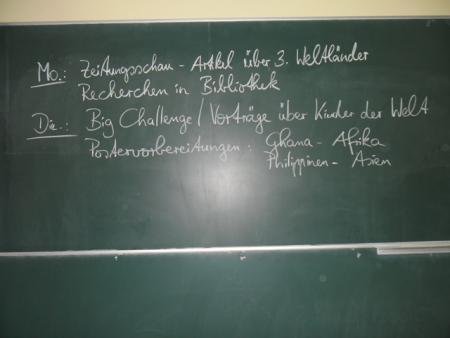 Mo.: Zeitungsschau - Artikel über 3. Weltländer
Recherchen in Bibliothek
Die.: Big Challenge / Vorträge über Kinder der Welt
Postervorbereitungen: Ghana - Afrika
Philippinen - Asien